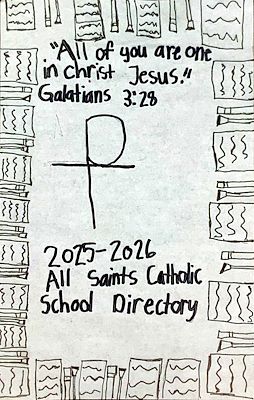 "All of you are one
in christ Jesus."
Galatians 3:28
2025-2026
All Saints Catholic
School Directory